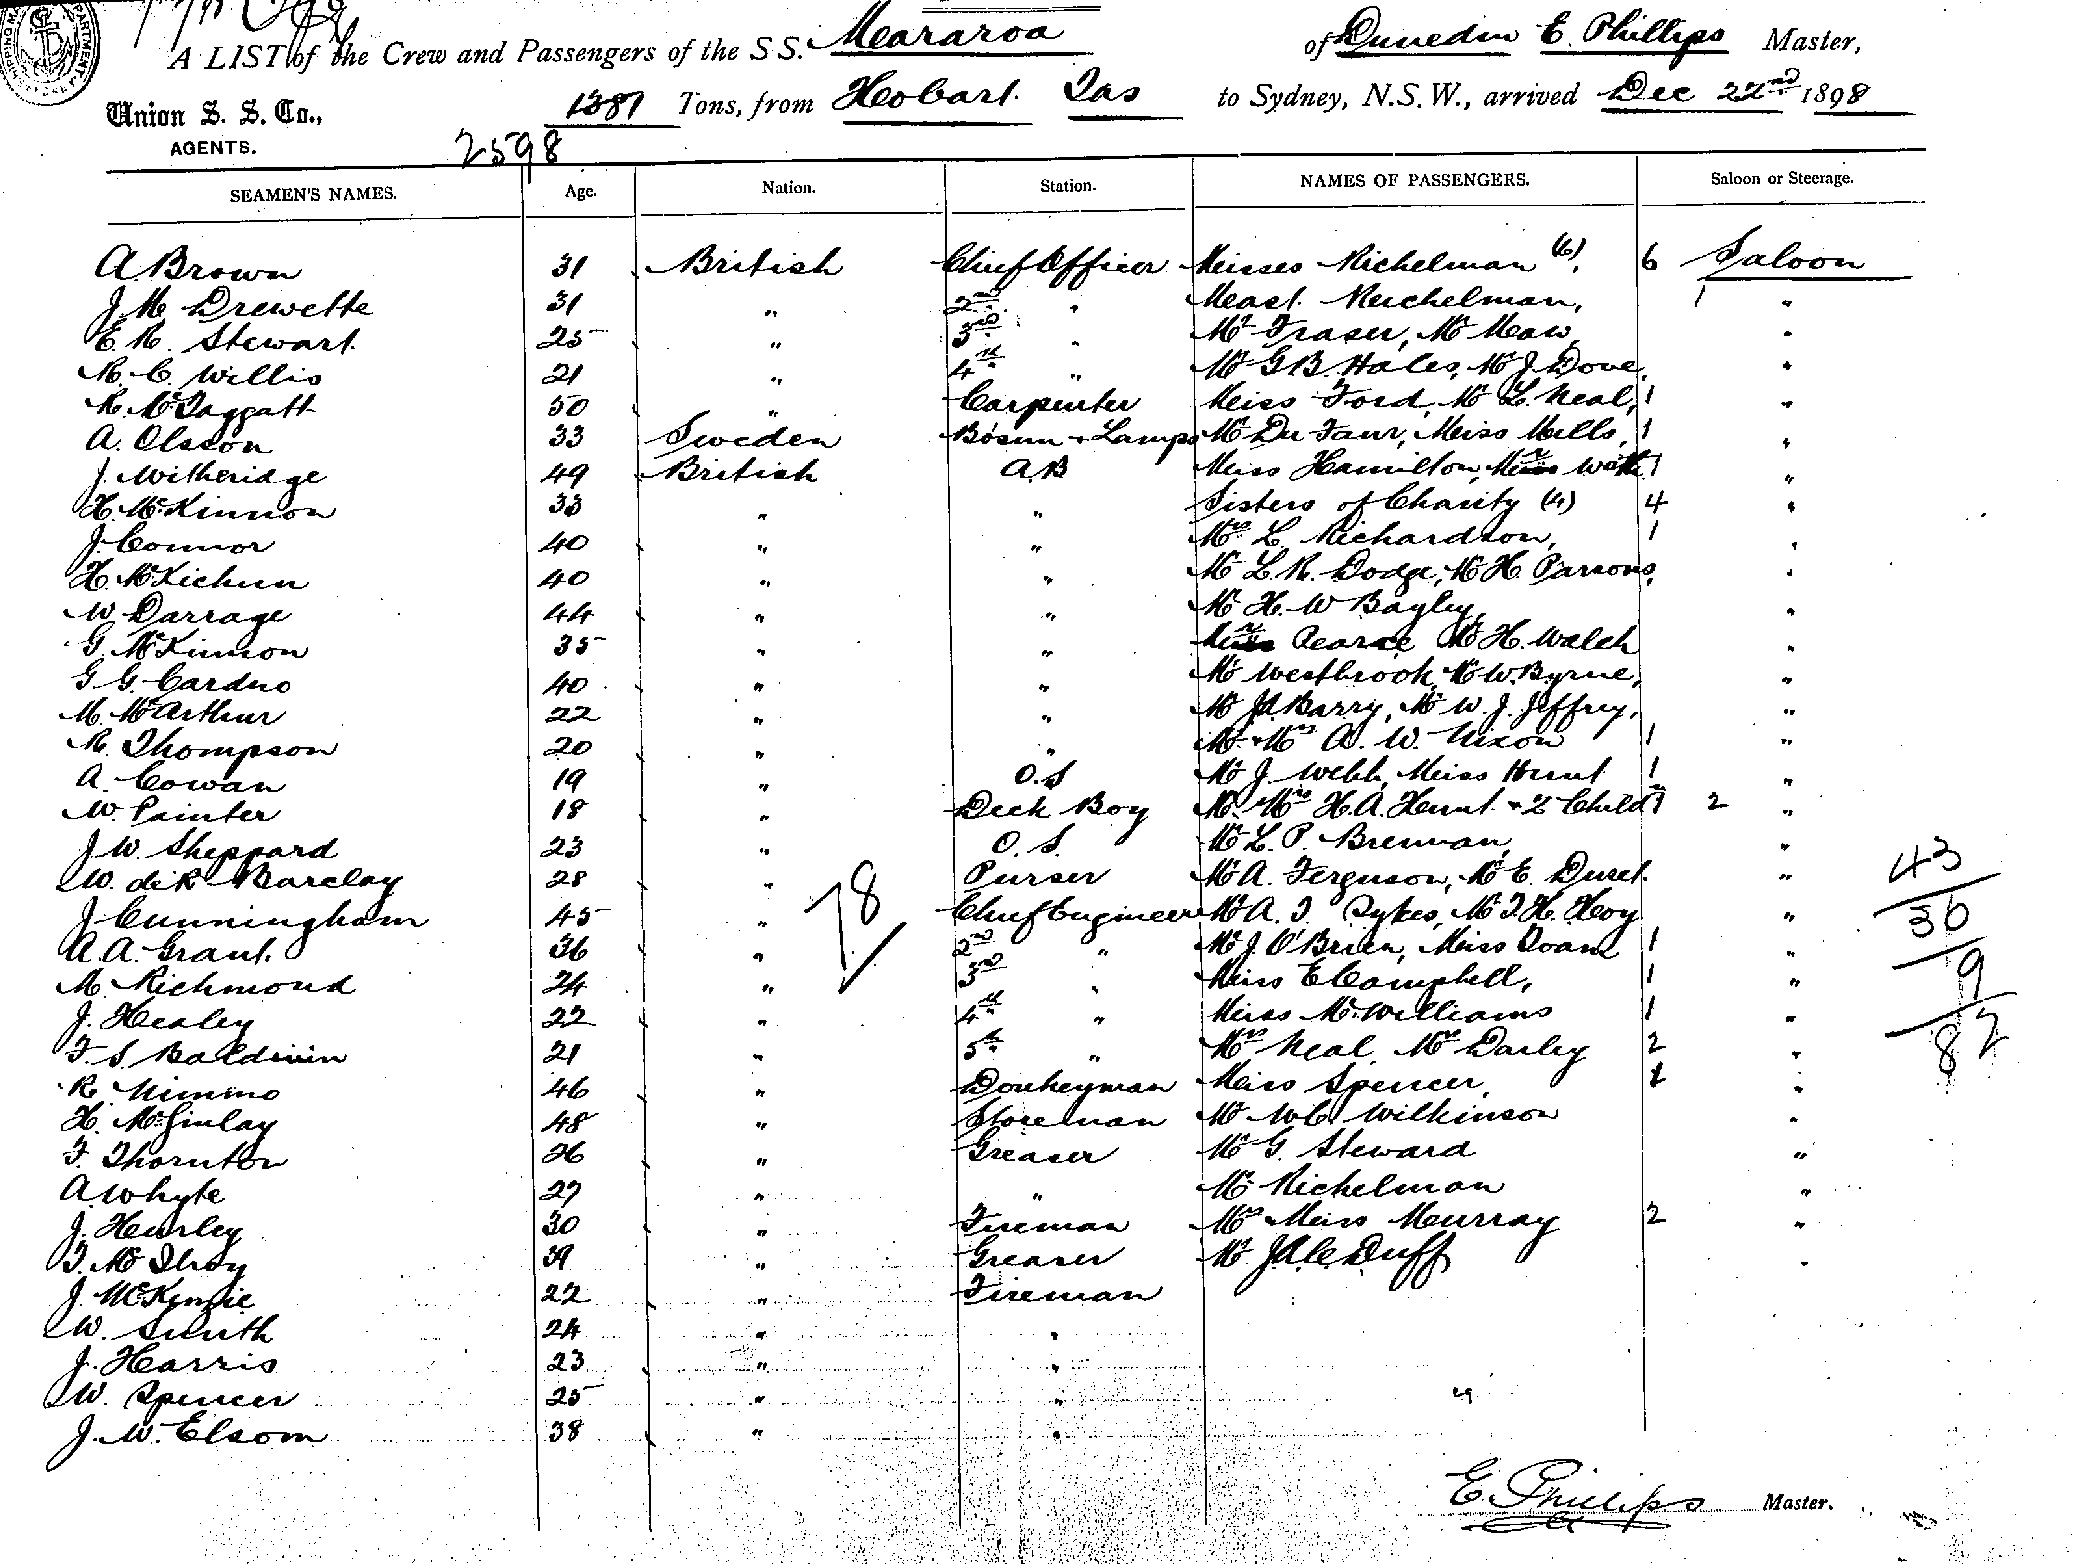 A LIST of the Crew and Passengers of the S.S. Mararoa of Dunedin E. Phillips Master,
Union S. S. Co., 1381 Tons, from Hobart Tas to Sydney, N.S.W., arrived Dec 22nd 1898
AGENTS. 2598
SEAMEN'S NAMES. Age. Nation. Station. NAMES OF PASSENGERS. Saloon or Steerage.
A Brown 31 British Chief Officer Misses Nichelman (6). 6 Saloon
J. M. Drewette 31 " 2nd " Mast. Nichelman, 1 "
E. R. Stewart 25 " 3rd " Mr Fraser, Mr Maw "
R. C. Willis 21 " 4th " Mr G B Hales, Mr J Dove, "
R. McTaggatt 50 " Carpenter Miss Ford, Mr L. Neal, 1 "
A. Olsson 33 Sweden Bosun & Lamps Mr Du Faur, Miss Mills, 1 "
J. Witheridge 49 British A.B Miss Hamilton, Mr Watt 1 "
H. McKinnon 33 " " Sisters of Charity (4) 4 "
J. Connor 40 " " Mrs L Richardson, 1 "
H. McKichun 40 " " Mr L. R. Dodge, Mr H. Parsons, "
W Darrage 44 " " Mr H. W Bayley, "
G. McKinnon 35 " " Mr Pearce Mr H. Walch "
G G. Carduo 40 " " Mr Westbrook, Mr W. Byrne, "
M. McArthur 22 " " Mr JA Barry, Mr W. J. Jeffrey, "
R. Thompson 20 " " Mr & Mrs A. W. Nixon 1 "
A. Cowan 19 " O.S Mr J. Webb, Miss Hunt 1 "
W. Painter 18 " Deck Boy Mr. Mrs H. A. Hunt & 2 Child 1 2 "
J. W. Sheppard 23 " O. S. Mr L. P. Brennan, "
W. deR Barclay 28 " Purser Mr A. Ferguson, Mr E. Duret. " 43
J Cunningham 45 " 78 Chief Engineer Mr A. T. Sykes, Mr T. H. Hoy " 30
A. A. Grant. 36 " 2nd " Mr J. O'Brien, Miss Doan 1 "
M. Richmond 24 " 3rd " Miss E Campbell, 1 " 9
J. Healey 22 " 4th " Miss McWilliams 1 "
F. S. Baldwin 21 " 5th " Mrs Neal, Mrs Darley 2 " 82
R. Nimmo 46 " Donkeyman Miss Spencer, 1 "
H. McGinlay 48 " Storeman Mr W C Wilkinson "
F. Thornton 26 " Greaser Mr G. Steward "
A Whyte 27 " " Mr Nichelman "
J. Hurley 30 " Fireman Mrs & Miss Murray 2 "
T. McIlroy 39 " Greaser Mr JAC Duff "
J. McKenzie 22 " Fireman
W. Smith 24 " "
J. Harris 23 " "
W. Spencer 25 " "
J. W. Elsom 38 " "
E. Phillips Master.